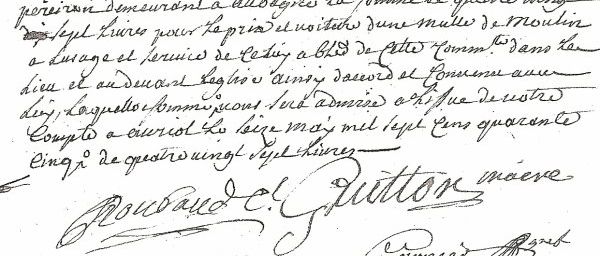 peireron demeurant a aubagne la somme de quatre vingt
dix sept livres pour le prix et voiture dune malle de moulin
a lusage et service de celuy a bled de cette comm.te dans le
lieu et au devant leglise ainsy dacord et convenu avec
luy, laquelle somme vous sera admise a lissue de notre
compte a auriol le seize may mil sept cens quarante
cinq de quatre vingt sept livres
Roubaud c. Guitton maire